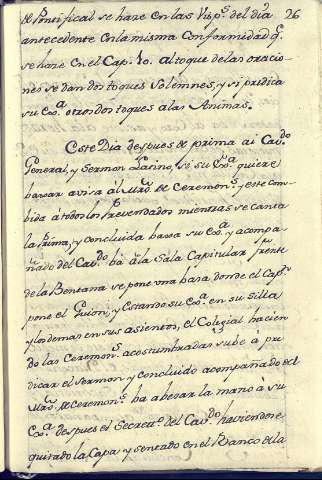 de Pontifical se haze en las Visps. del dia 26
antecedente en la misma conformidad q.
se haze en el Cap. 10. al toque de las oracio
nes se dan dos toques Solemnes, y si predica
su Exa. otros dos toques a las Animas.
Este Dia despues de prima ai Cavdo.
General, y Sermon Latino, si su Exa. quiere
baxar avisa al Mro. de Ceremons. y este com-
bida a todos los Prevendados mientras se canta
la Prima, y concluida baxa su Exa. y acompa
ñado del Cavdo. bà à la Sala Capitular frente
de la Bentana se pone una basa donde el Capn.
pone el Guion, y estando su Exa. en su silla
y los demas en sus asientos, el Colegial hacien
do las Ceremons. acostumbradas sube à pre
dicar el sermon y concluido acompañado del
Mro. de Ceremons. ba a besar la mano à su
Exa. despues el Secreto. del Cavdo. haviendose
quitado la Capa y sentado en el Banco de la